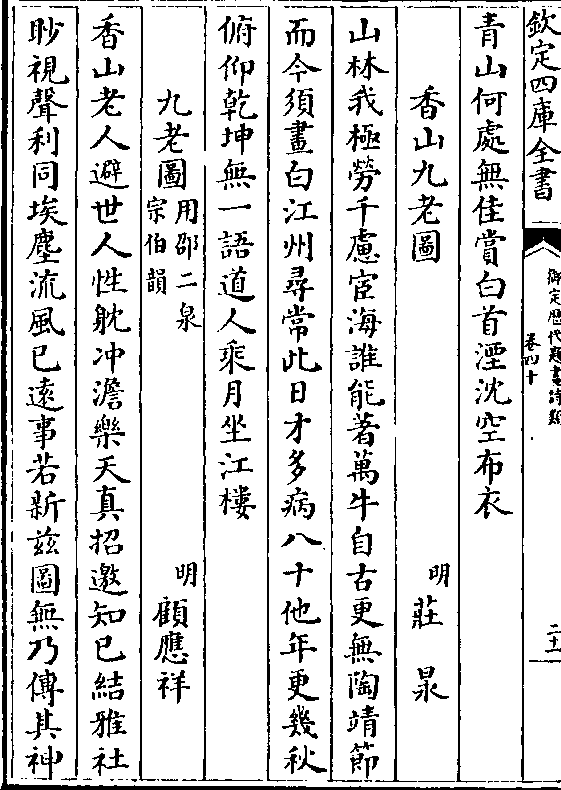 欽定四庫全書
御定歷代題畫詩類
卷四十
二十
青山何處無佳賞白首湮沈空布衣
香山九老圖
明 莊㫤
山林我極勞千慮宦海誰能著萬牛自古更無陶靖節
而今須畫白江州尋常此日才多病八十他年更幾秋
俯仰乾坤無一語道人乘月坐江樓
九老圖
用邵二泉
宗伯韻
明 顧應祥
香山老人避世人性躭冲澹樂天真招邀知已結雅社
眇視聲利同埃塵流風已遠事若新兹圖無乃傳其神